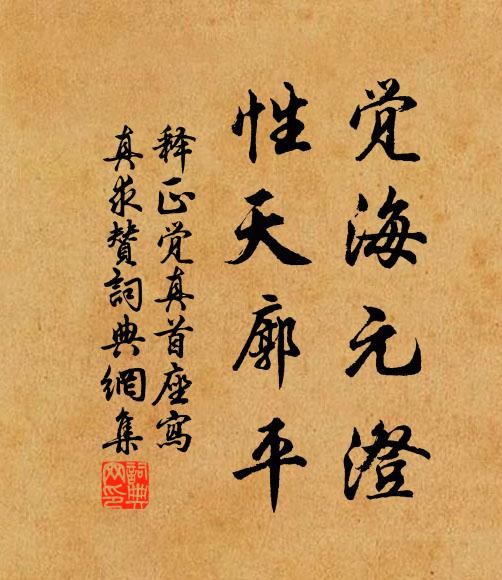 觉海元澄
性天廓平
释正觉真首座写
真求赞词典網集
詞典网印